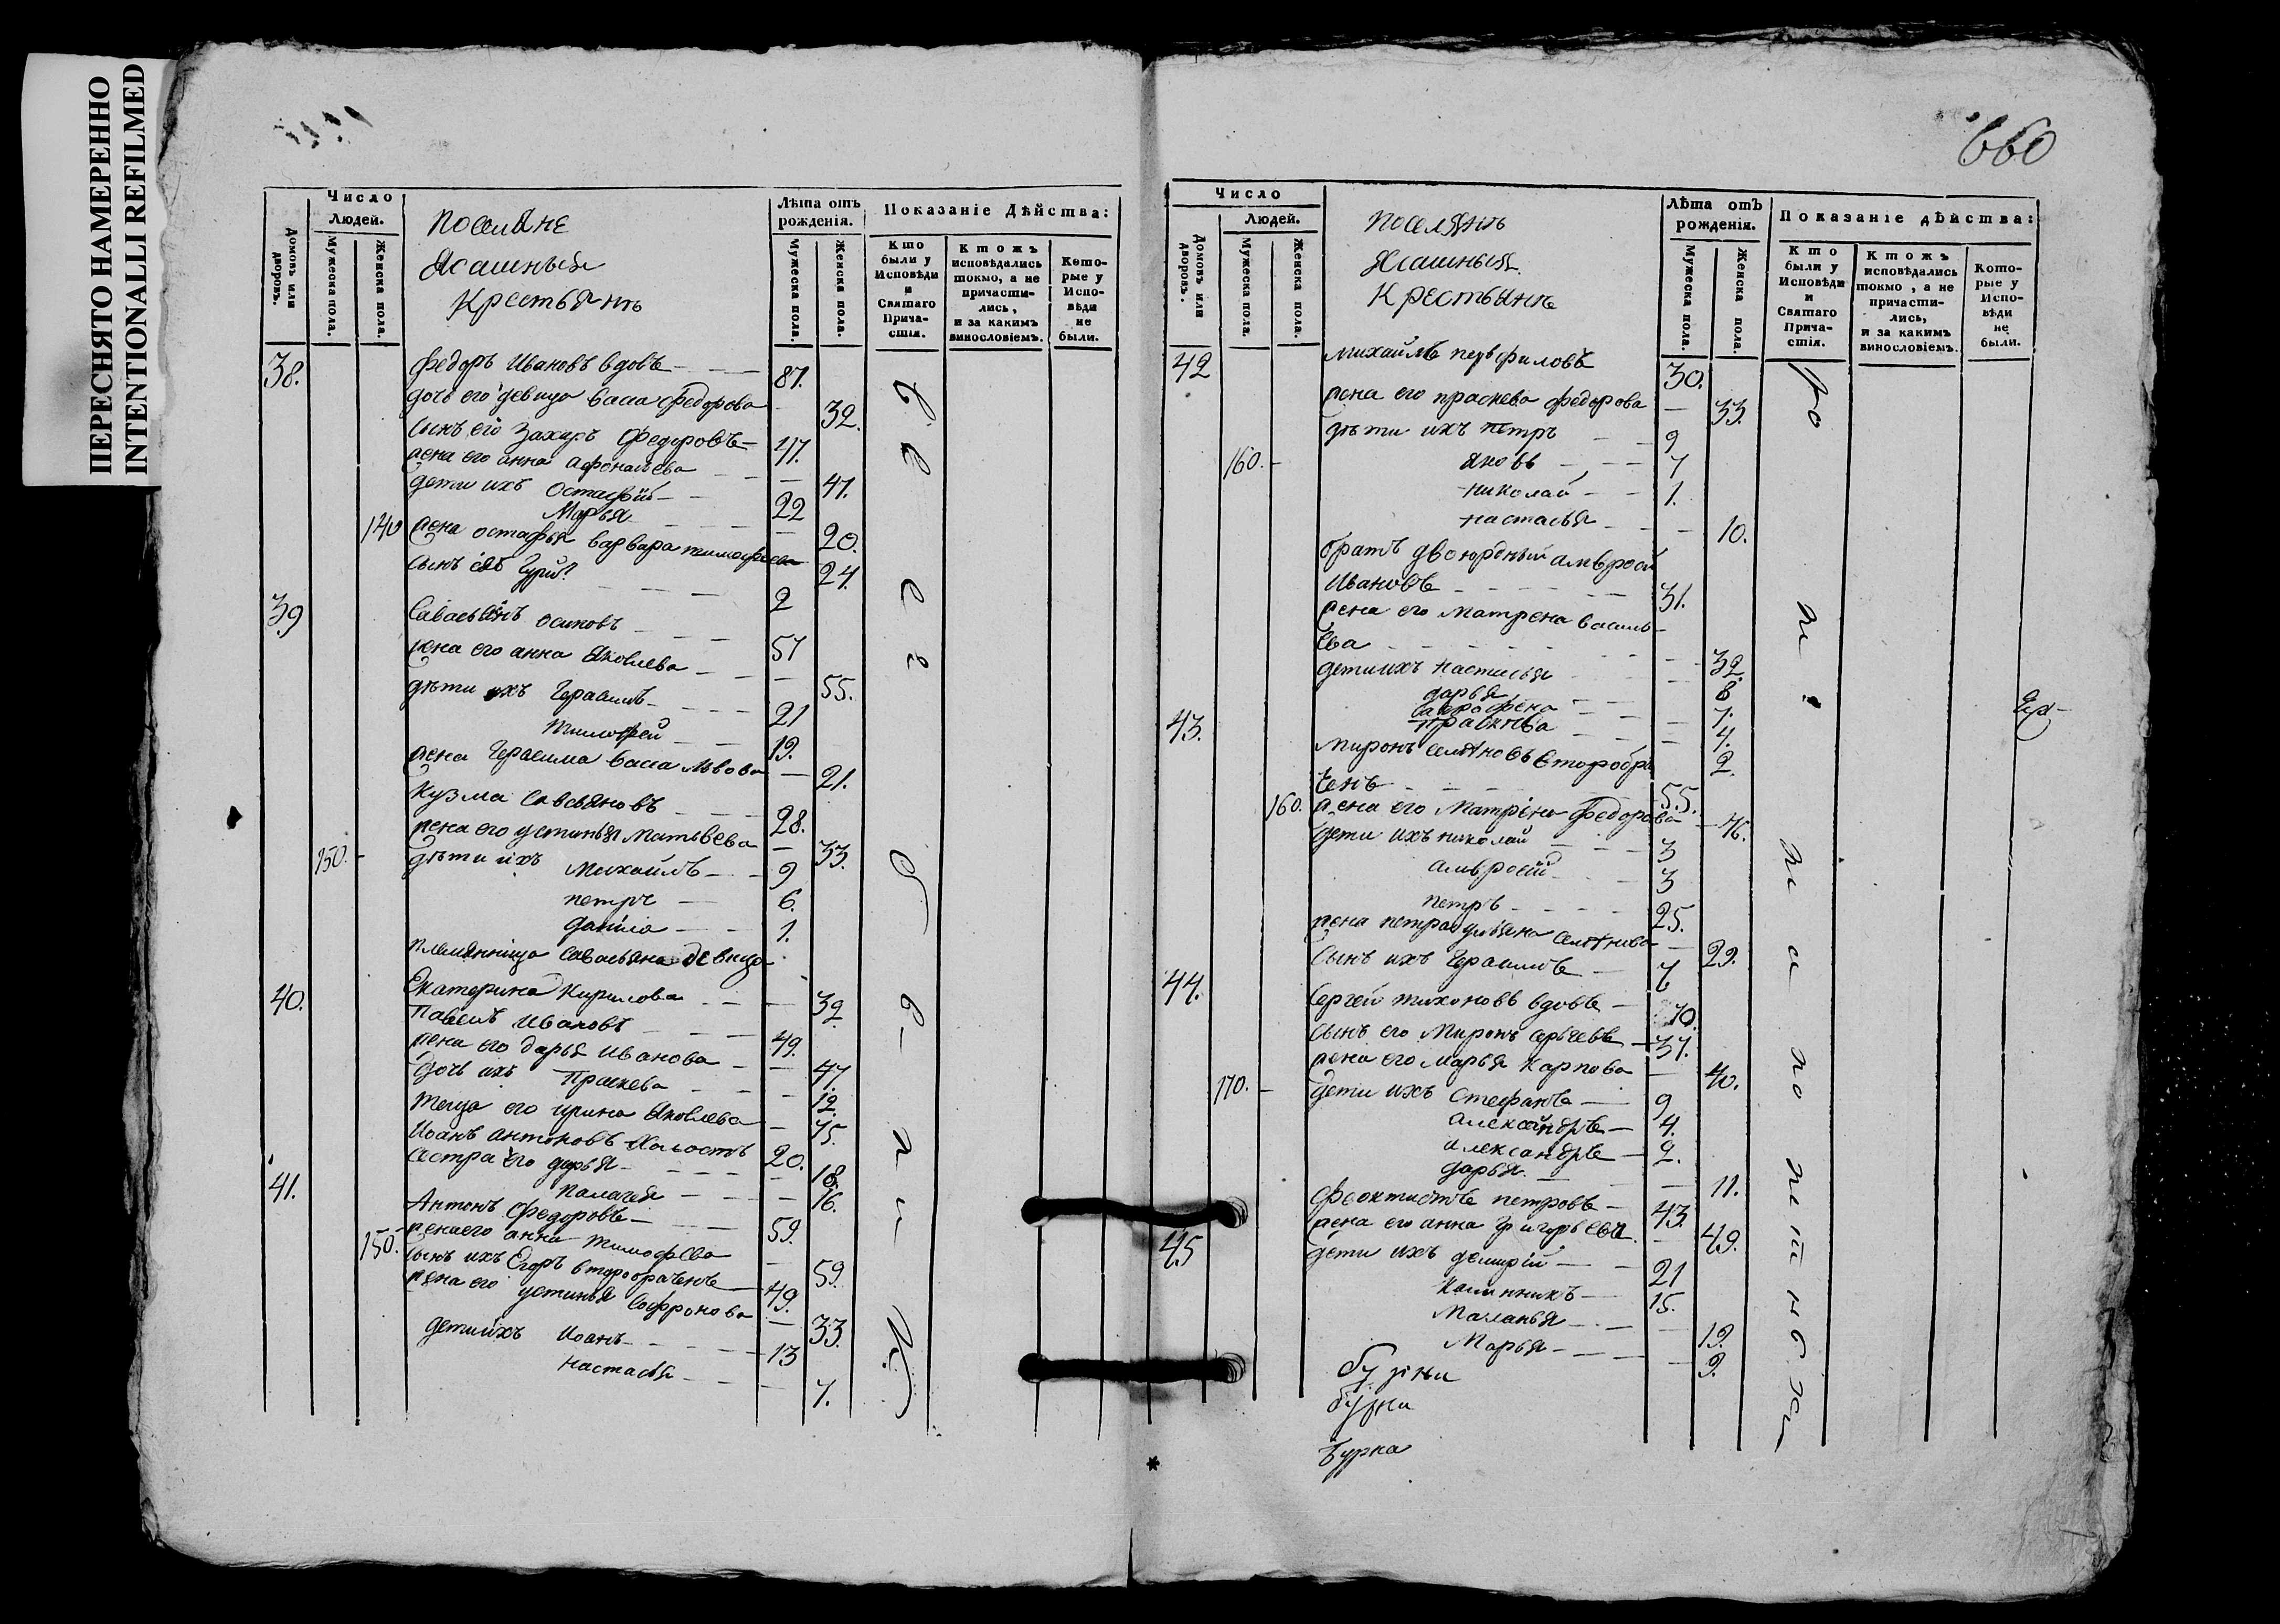 ПЕРЕСНЯТО НАМЕРЕННО
INTENTIONALLI REFILMED
Число
Людей.
Домовъ или дворовъ.
Мужеска пола.
Женска пола.
Поселяне
Ясашныя
Крестьянъ
Лѣта отъ рожденія.
Мужеска пола.
Женска пола.
Показаніе Дѣйства:
Кто были у Исповѣди и Святаго Прича-стія.
Ктожъ исповѣдались токмо, а не причасти-лись, и за какимъ винословіемъ.
Кото-рые у Испо-вѣди не были.
38. Федоръ Ивановъ вдовъ 87.
дочь его девица Васса Федорова 32.
сынъ его Захаръ Федоровъ 47.
жена его анна Афонасьева 47.
дети ихъ Остафiй 22
Марья 20.
140 жена остафья варвара тимофеева 24.
сынъ ея Гурiй 2
39 Савасьянъ осиповъ 57
жена его анна Яковлева 55.
дѣти ихъ Герасимъ 21
Тимофей 19.
жена Герасима Васса Львова 21.
Кузма Савсьяновъ 28.
жена его устинья Матвѣева 33.
150. дѣти ихъ Михайлъ 9
петръ 6.
данiла 1.
племянница Савасьяна девица
Екатерина Кирилова 32.
40. Павелъ Ивановъ 49.
жена его дарья Иванова 47.
дочь ихъ Праскева 12.
Теща его ирина Яковлева 75.
Иоанъ антоновъ Холостъ 20.
сестра его дарья 18.
Палагея 16.
41. Антонъ Федоровъ 59.
150. жена его анна Тимофѣева 59.
сынъ ихъ Егоръ второбраченъ 49.
жена его устинья Софронова 33.
дети ихъ Иоанъ 13
Настасья 7.
660
Число
Людей.
Домовъ или дворовъ.
Мужеска пола.
Женска пола.
Поселянъ
Ясашныя
Крестьянъ
Лѣта отъ рожденія.
Мужеска пола.
Женска пола.
Показаніе дѣйства:
Кто были у Исповѣди и Святаго Прича-стія.
Ктожъ исповѣдались токмо, а не причасти-лись, и за какимъ винословіемъ.
Кото-рые у Испо-вѣди не были.
42 Михайлъ перфиловъ 30.
жена его праскева федорова 33.
дѣти ихъ петръ 9
160. Яковъ 7
Николай 1.
Настасья 10.
братъ двоюродный амвросiй
Ивановъ 31.
жена его Матрена василь-
ева 32.
дети ихъ Настасья 8
дарья 7.
4.
43. Праскева 2.
Миронъ второбра
ченъ 55.
160. жена его Матрена Федорова 46.
дети ихъ николай 3
амвросiй 3
петръ 25.
жена петра 29.
сынъ ихъ Герасимъ 7
44. Сергей тихоновъ вдовъ 70.
сынъ его Миронъ Сергеевъ 37.
жена его Марья Карпова 40.
170. дети ихъ Стефанъ 9
александръ 4.
александръ 2.
дарья 11.
Феоктистъ петровъ 43.
жена его анна Григорьева 49.
45 дети ихъ димитрiй 21
Калинникъ 15.
Маланья 19.
Марья 9.